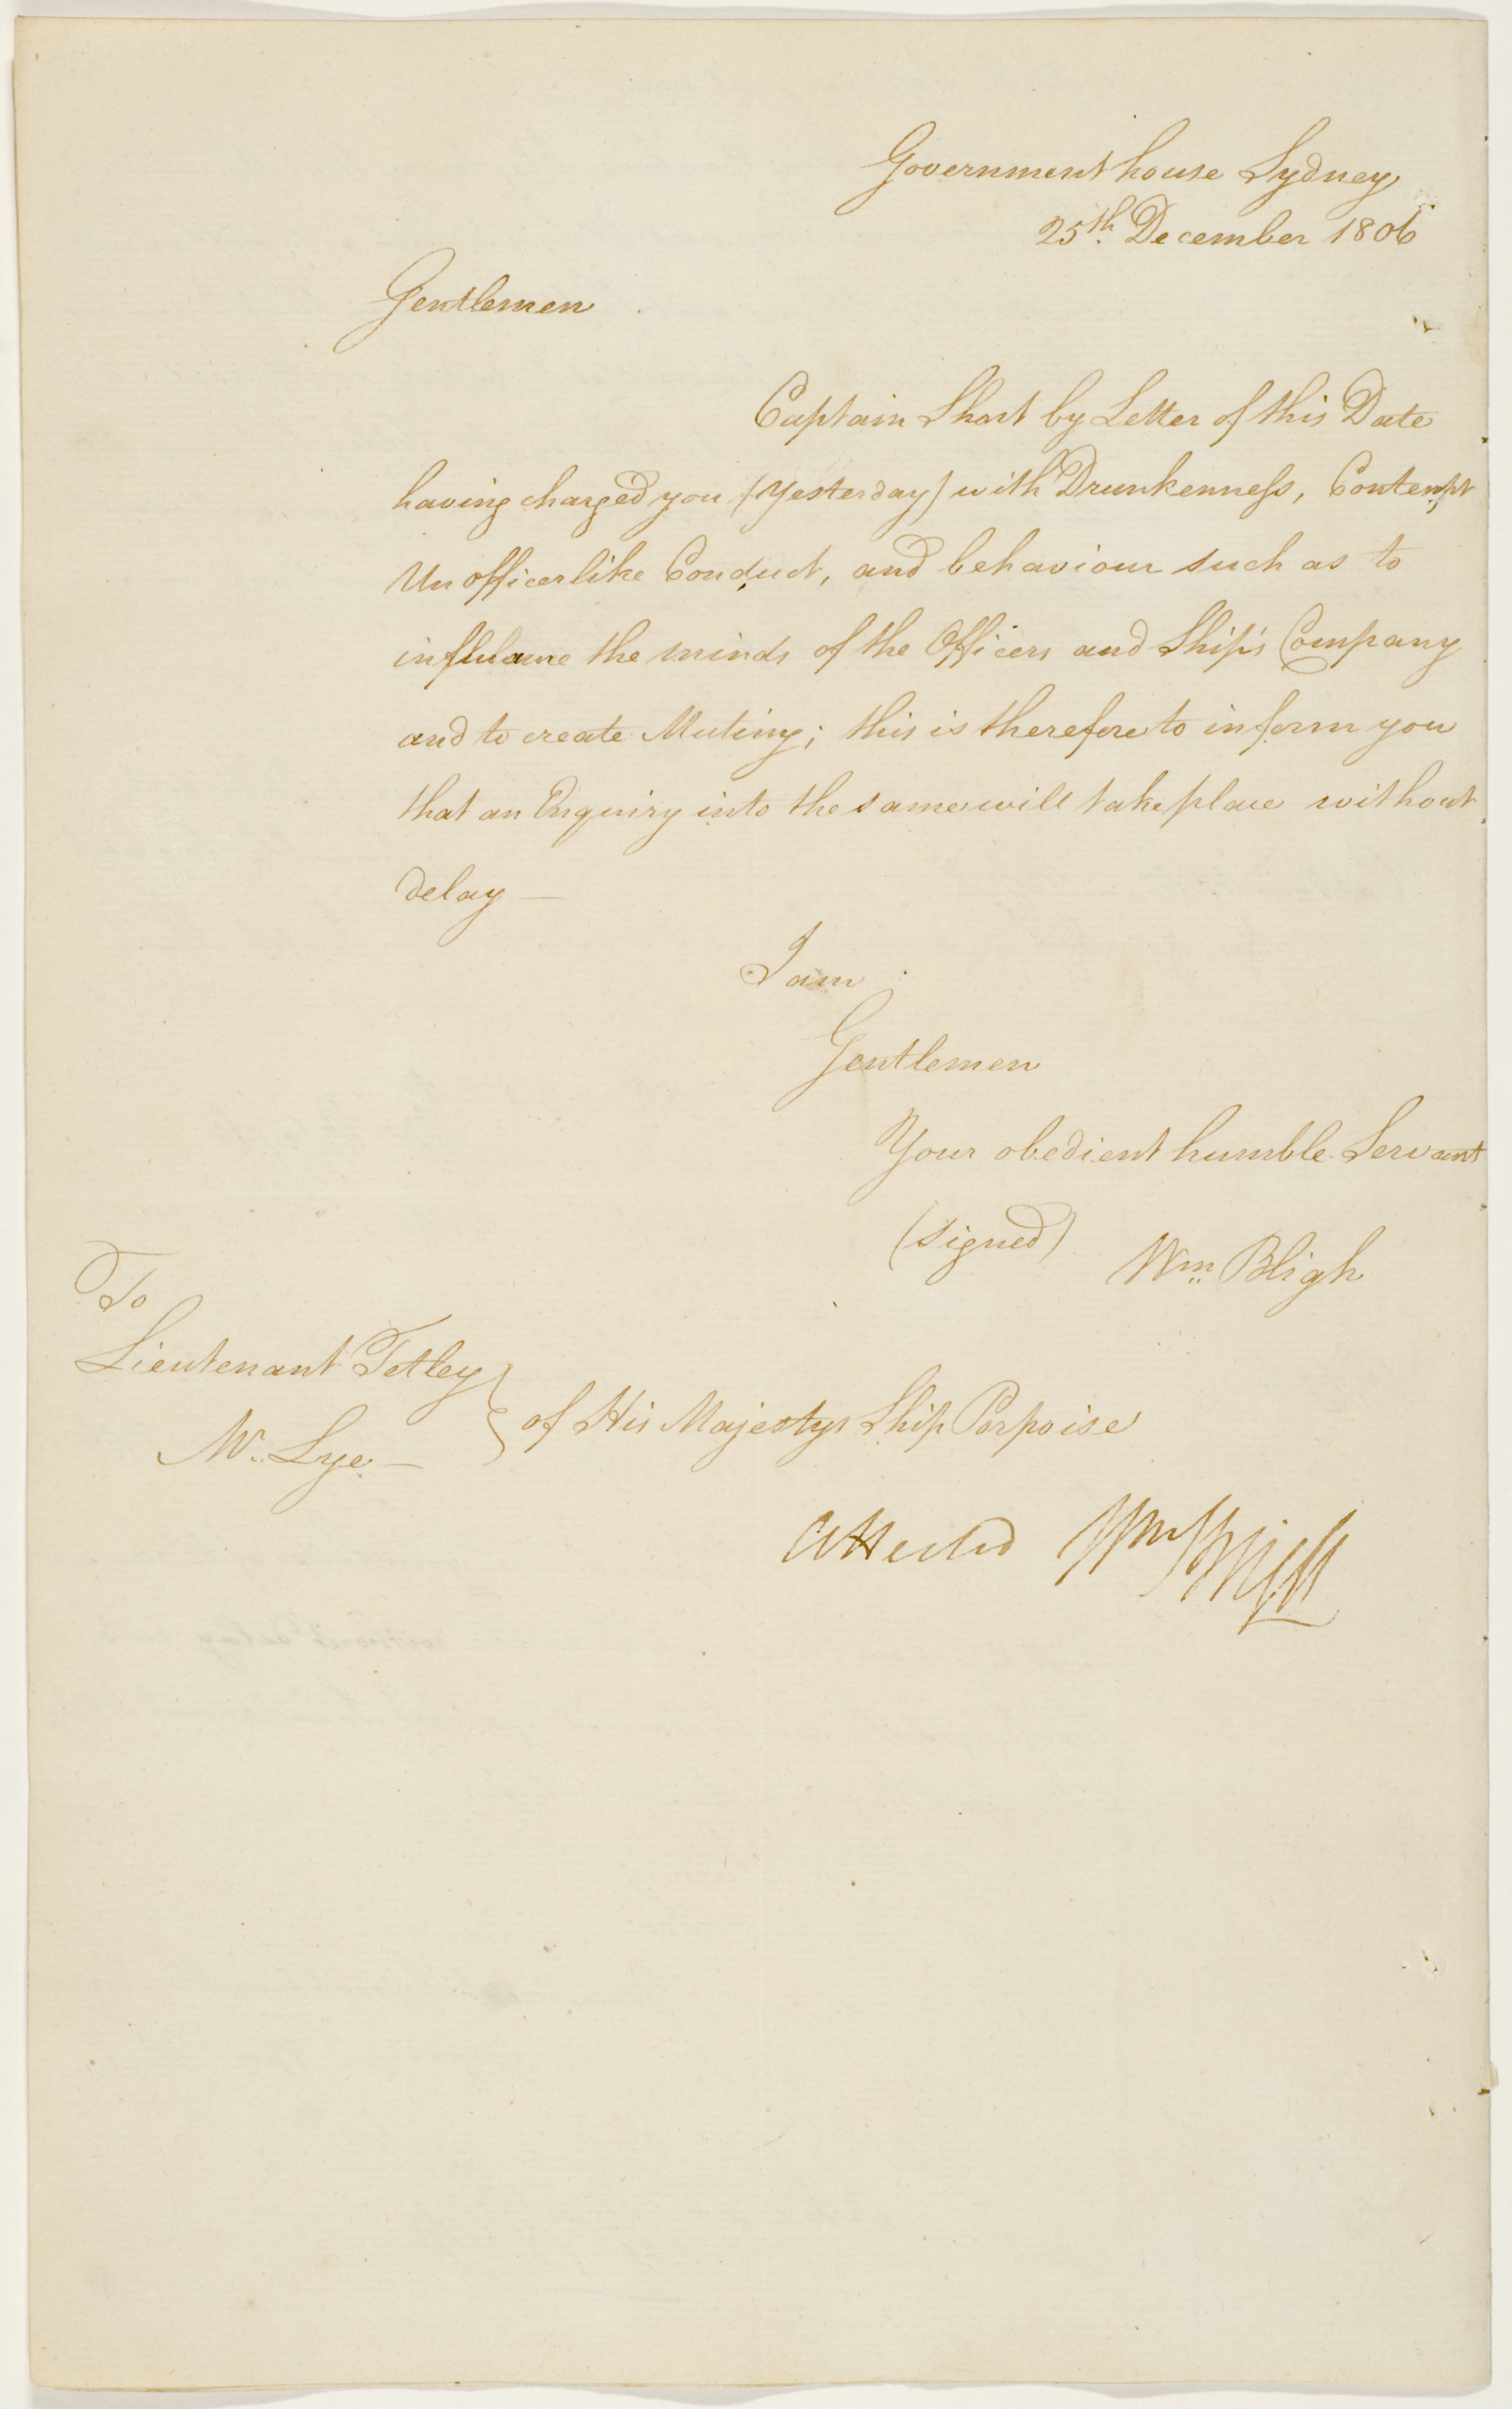 Government house Sydney
25th. December 1806
Gentlemen
Captain Short by Letter of this Date
having charged you (Yesterday) with Drunkenness, Contempt
Unofficerlike Conduct, and behaviour such as to
inflame the minds of the Officers and Ship's Company
and to create Mutiny; this is therefore to inform you
that an Enquiry into the same will take place without
delay —
I am
Gentlemen
Your obedient humble Servant
(signed) Wm. Bligh
To
Lieutenant Tetley
Mr. Lye —
} of His Majestys Ship Porpoise
Attested Wm Bligh